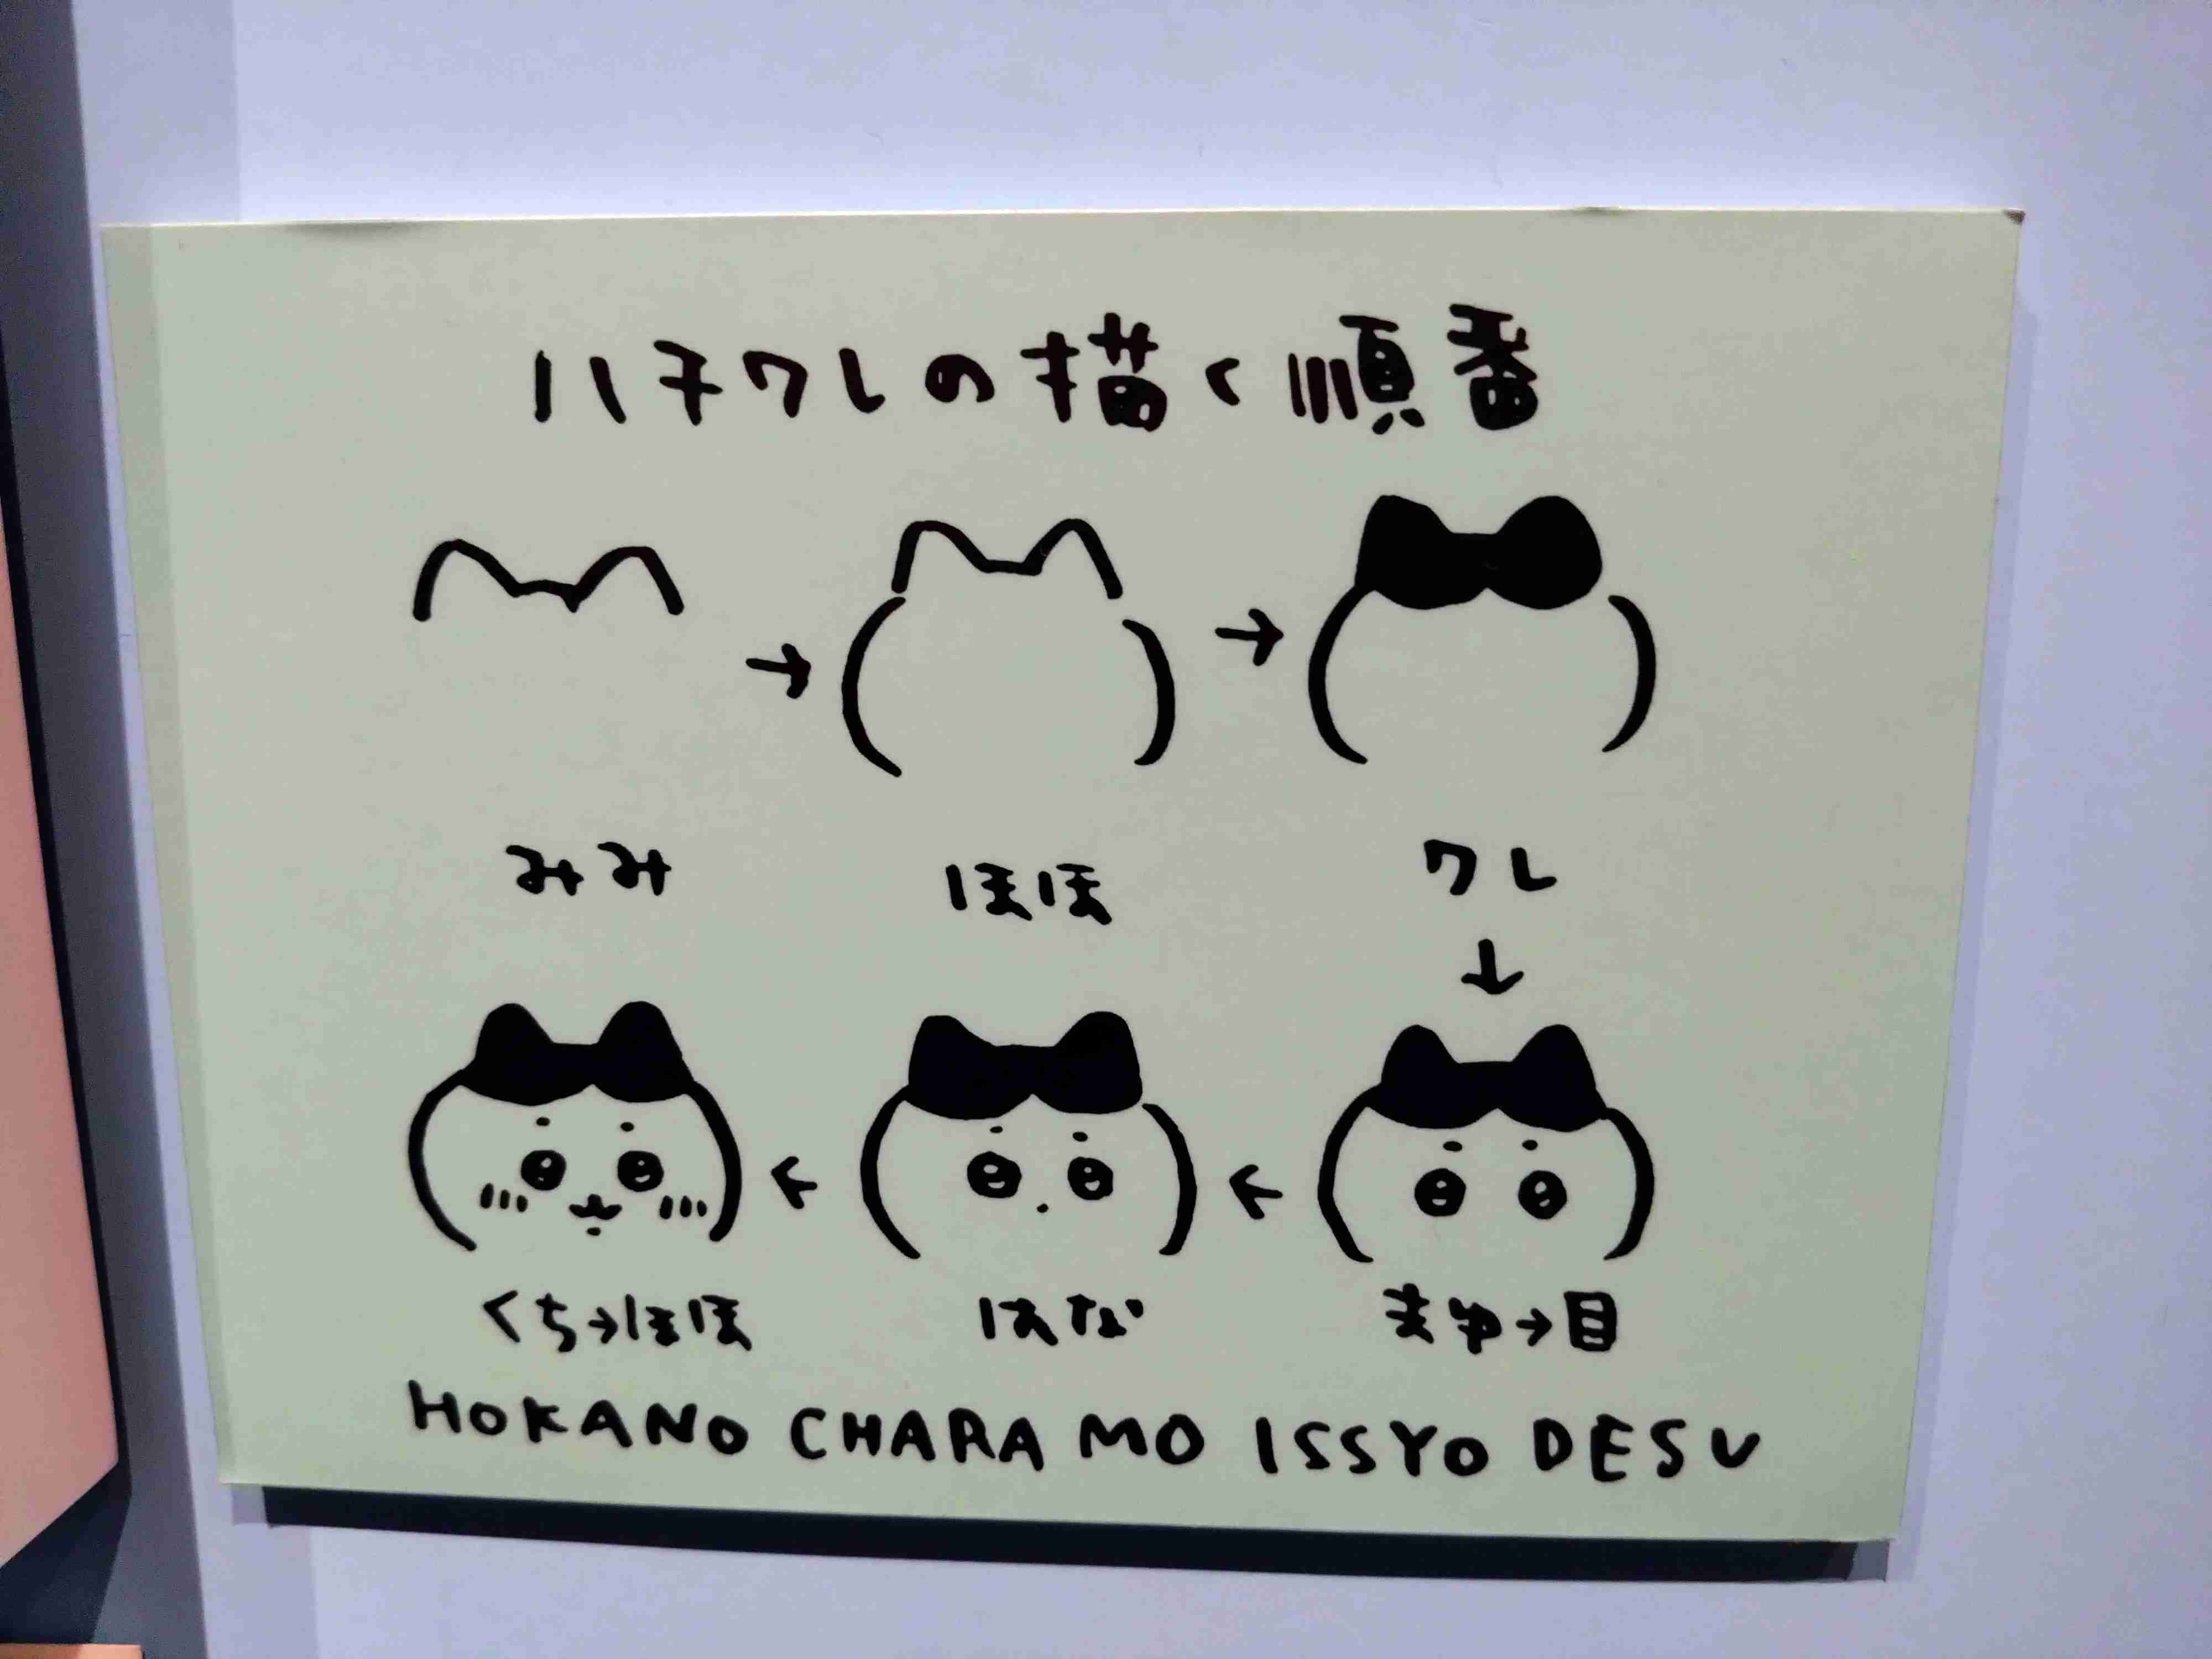 ハチワレの描く順番
→ →
みみ ほほ ワレ
↓
← ←
くち→ほほ はな まゆ→目
HOKANO CHARA MO ISSYO DESU